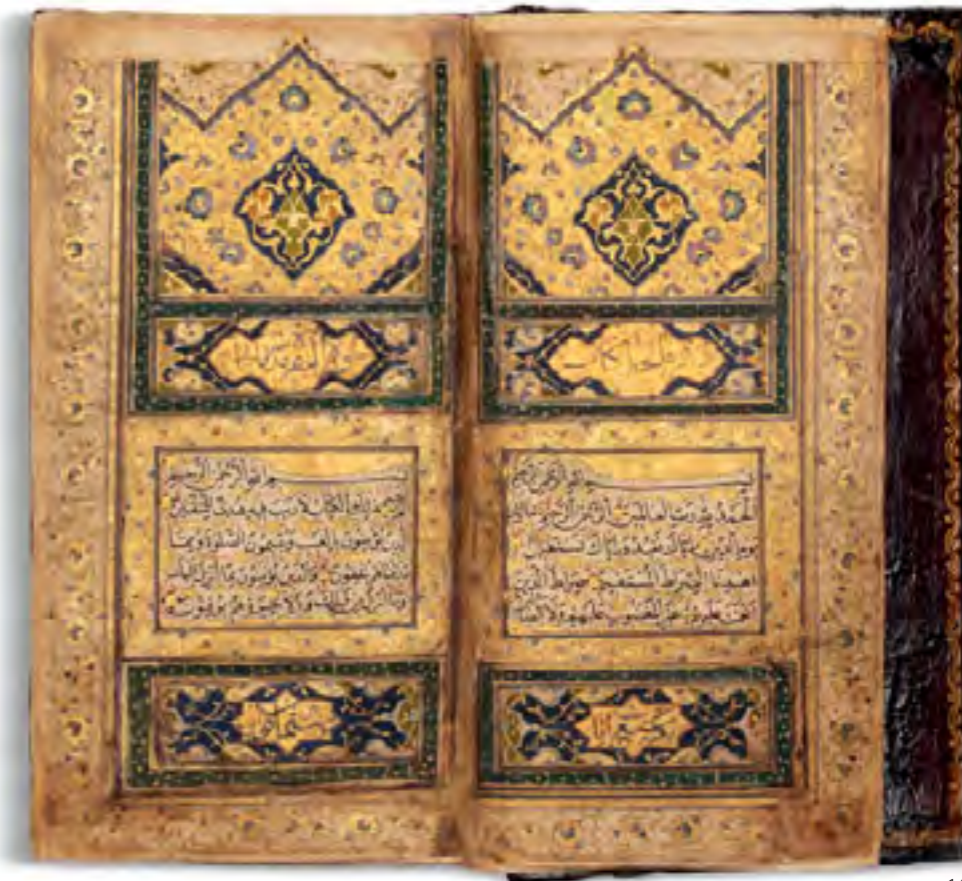 بسم الله الرحمن الرحيم
الحمد لله رب العالمين الرحمن الرحيم مالك
يوم الدين اياك نعبد واياك نستعين
اهدنا الصراط المستقيم صراط الذين
انعمت عليهم غير المغضوب عليهم ولا الضا
سورة البقرة
بسم الله الرحمن الرحيم
الم ذلك الكتاب لا ريب فيه هدى للمتقين
الذين يؤمنون بالغيب ويقيمون الصلوة ومما
رزقناهم ينفقون والذين يؤمنون بما انزل اليك
وما انزل من قبلك وبالاخرة هم يوقنون